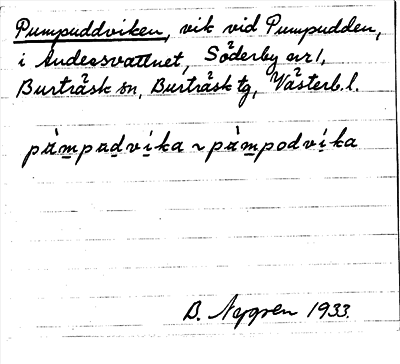 Pumpuddviken, vik vid Pumpudden,
i Andersvattnet, Söderby nr 1,
Burträsk sn, Burträsk tg, Västerb. l.
pàmpadvíka ~ pàmpodvíka
B. Nygren 1933.